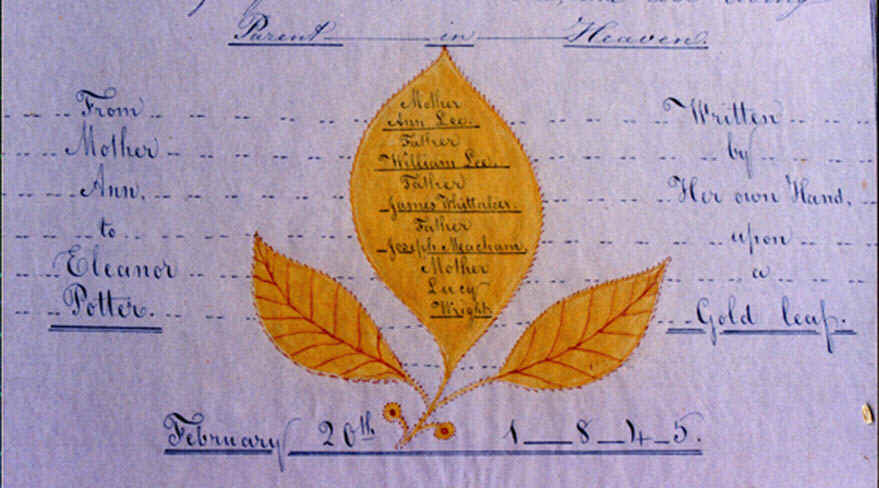 Parent in Heaven.
From
Mother
Ann,
to
Eleanor
Potter.
Mother
Ann Lee.
Father
William Lee.
Father
James Whittaker.
Father
Joseph Meacham,
Mother
Lucy
Wright
Written
by
Her own Hand,
upon
a
Gold leaf.
February 20th 1__8_4_5.